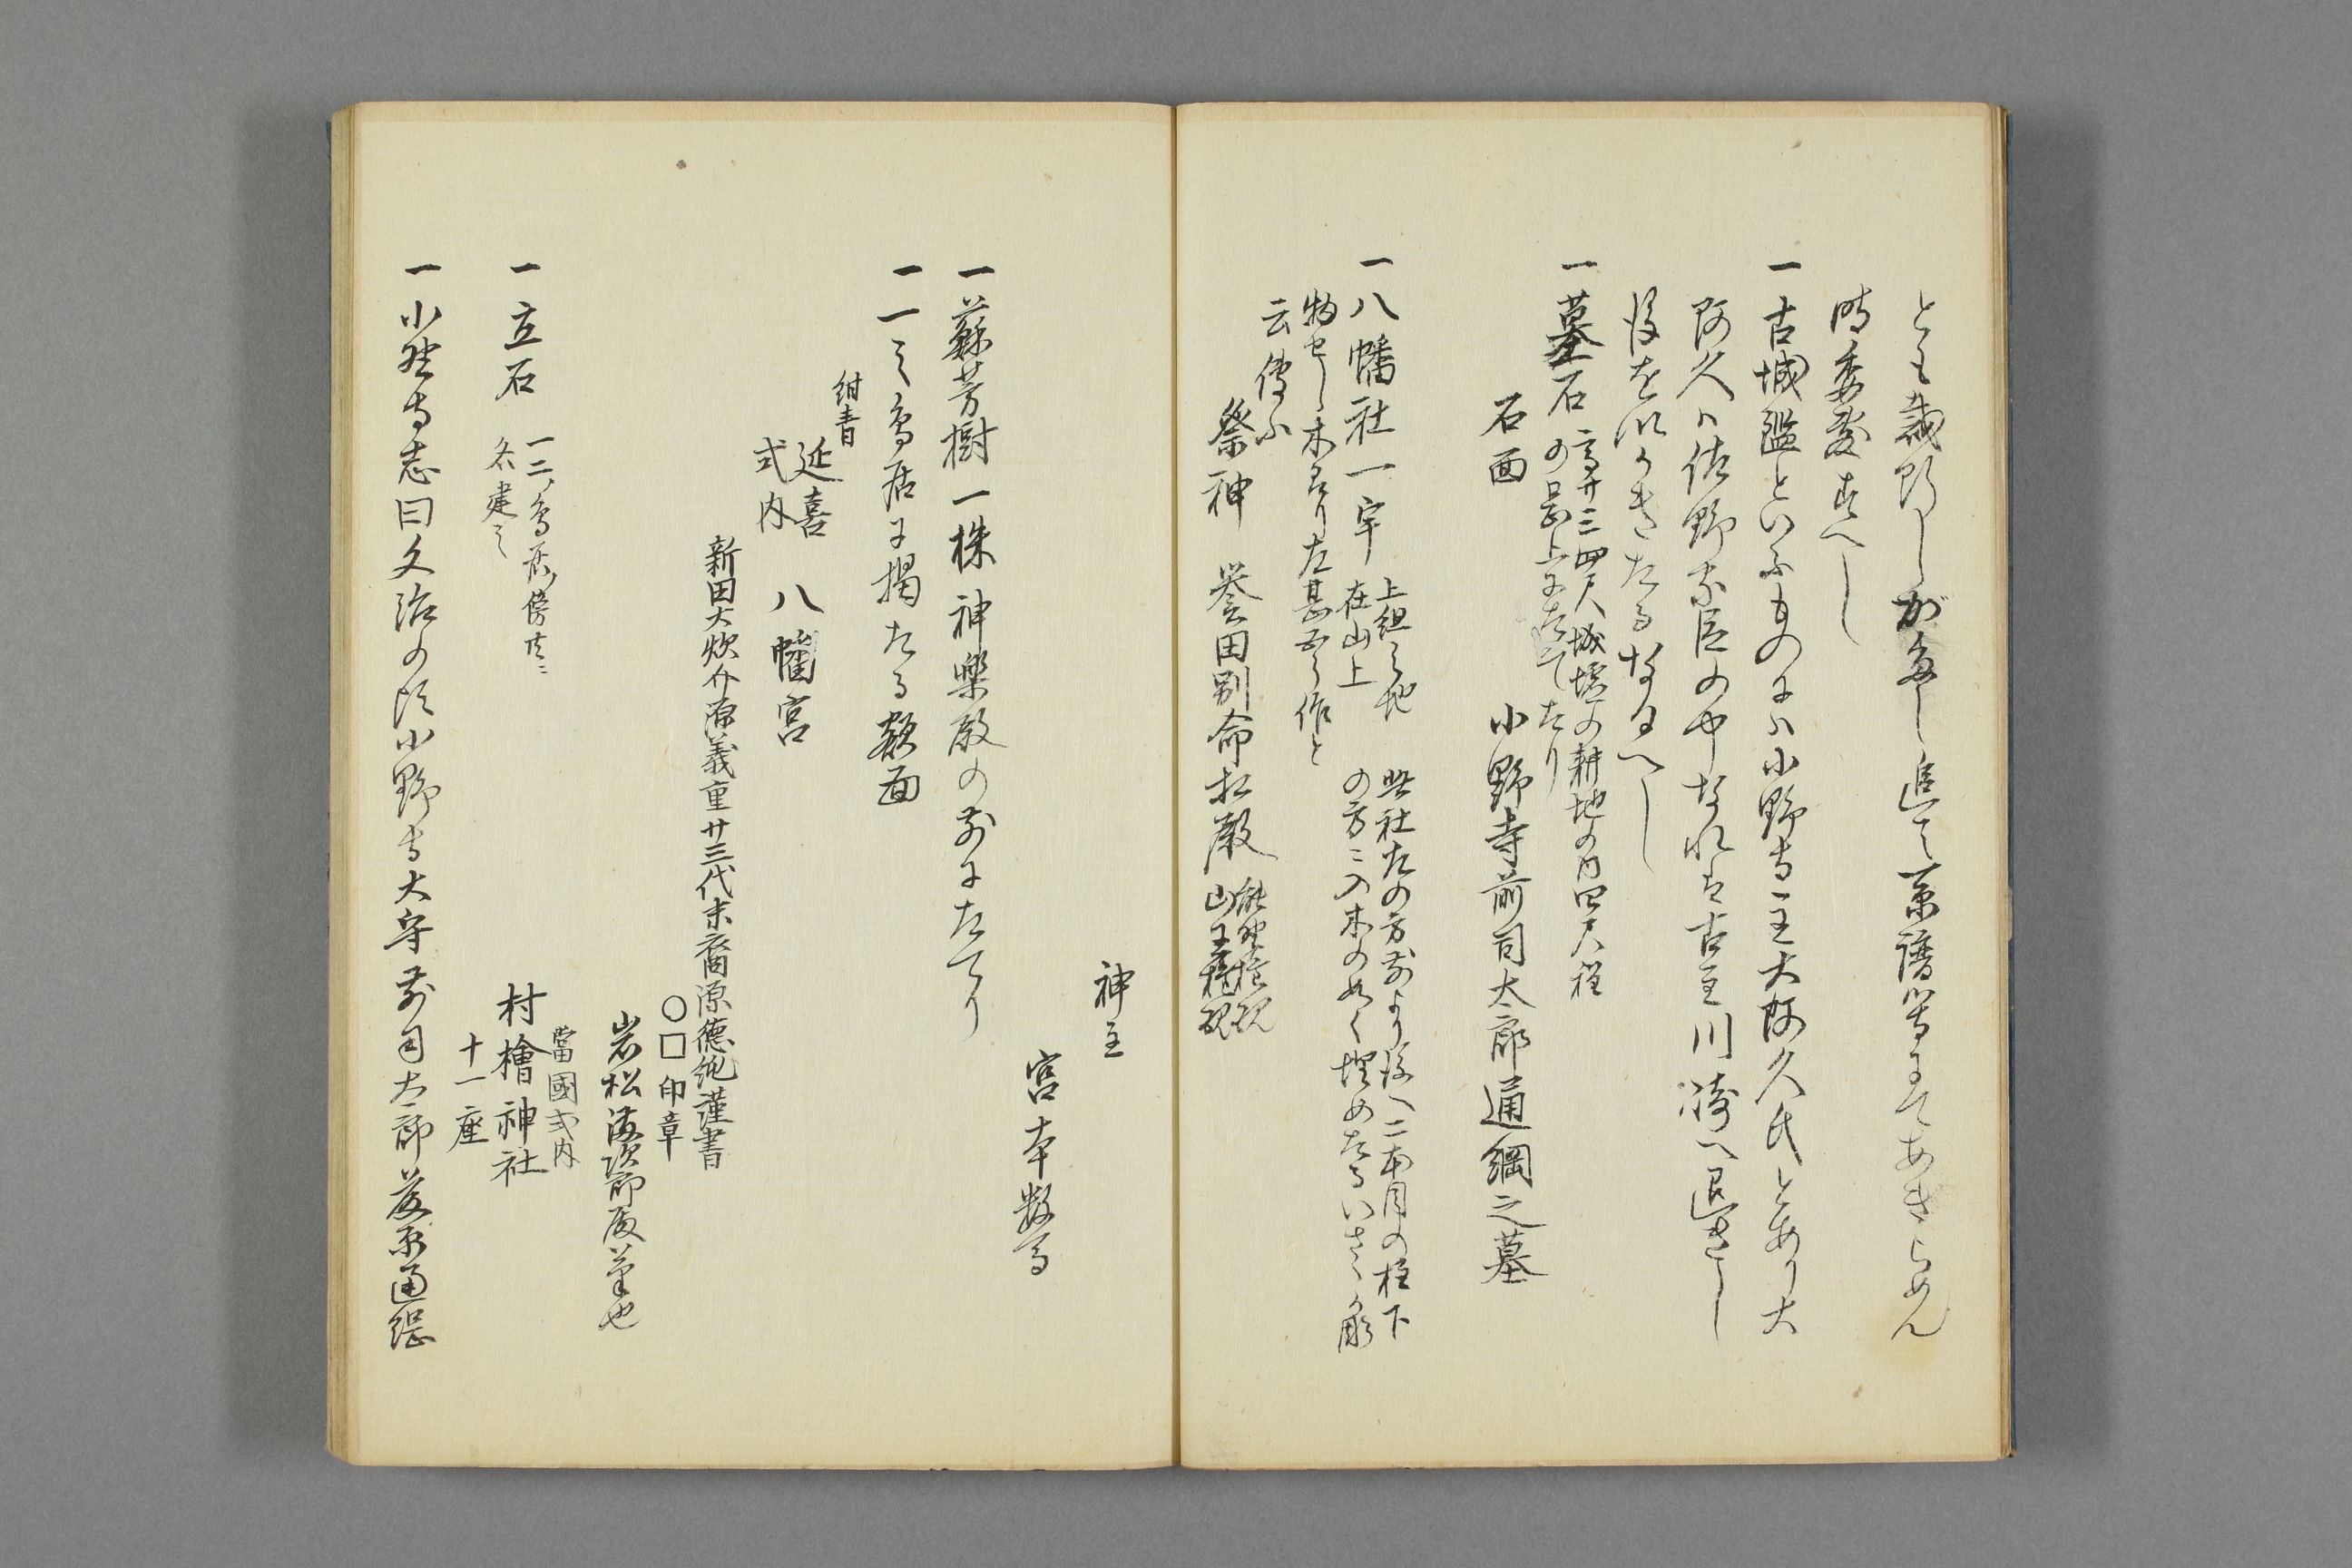 とも裁断しがたし追て系譜等にてあきらめん
時委敷すへし
一古城鑑といふものには小野寺一主大阿久氏とあり大
阿久ハ佐野家臣のやなれは古主川崎へ退きし
後を かきたるなるへし
一墓石 高サ三四尺城墟の耕地の内四尺程
の畾上に建てたり
石面 小野寺前司太郎通綱之墓
一八幡社一宇 上組之地
在山上
此社左の方前より後へ二本目の柱下
の方ニ入木の如く埋めたるいさゝか彫
物せし木あり左甚五良作と
云傳ふ
祭神 誉田別命 相殿 熊野権現
山王権現
神主
宮本数馬
一蘇芳樹一株神樂殿の前にたてり
一一之鳥居に掲たる額面
紺青
延喜
式内 八幡宮
新田大炊介源義重廿三代末裔源徳純謹書
〇□印章
岩松満次郎殿筆也
一立石 一二ノ鳥居ノ傍共ニ
在建之
當國式内
村檜神社
十一座
一小野寺志曰文治の頃小野寺大守前司太郎藤原通綱